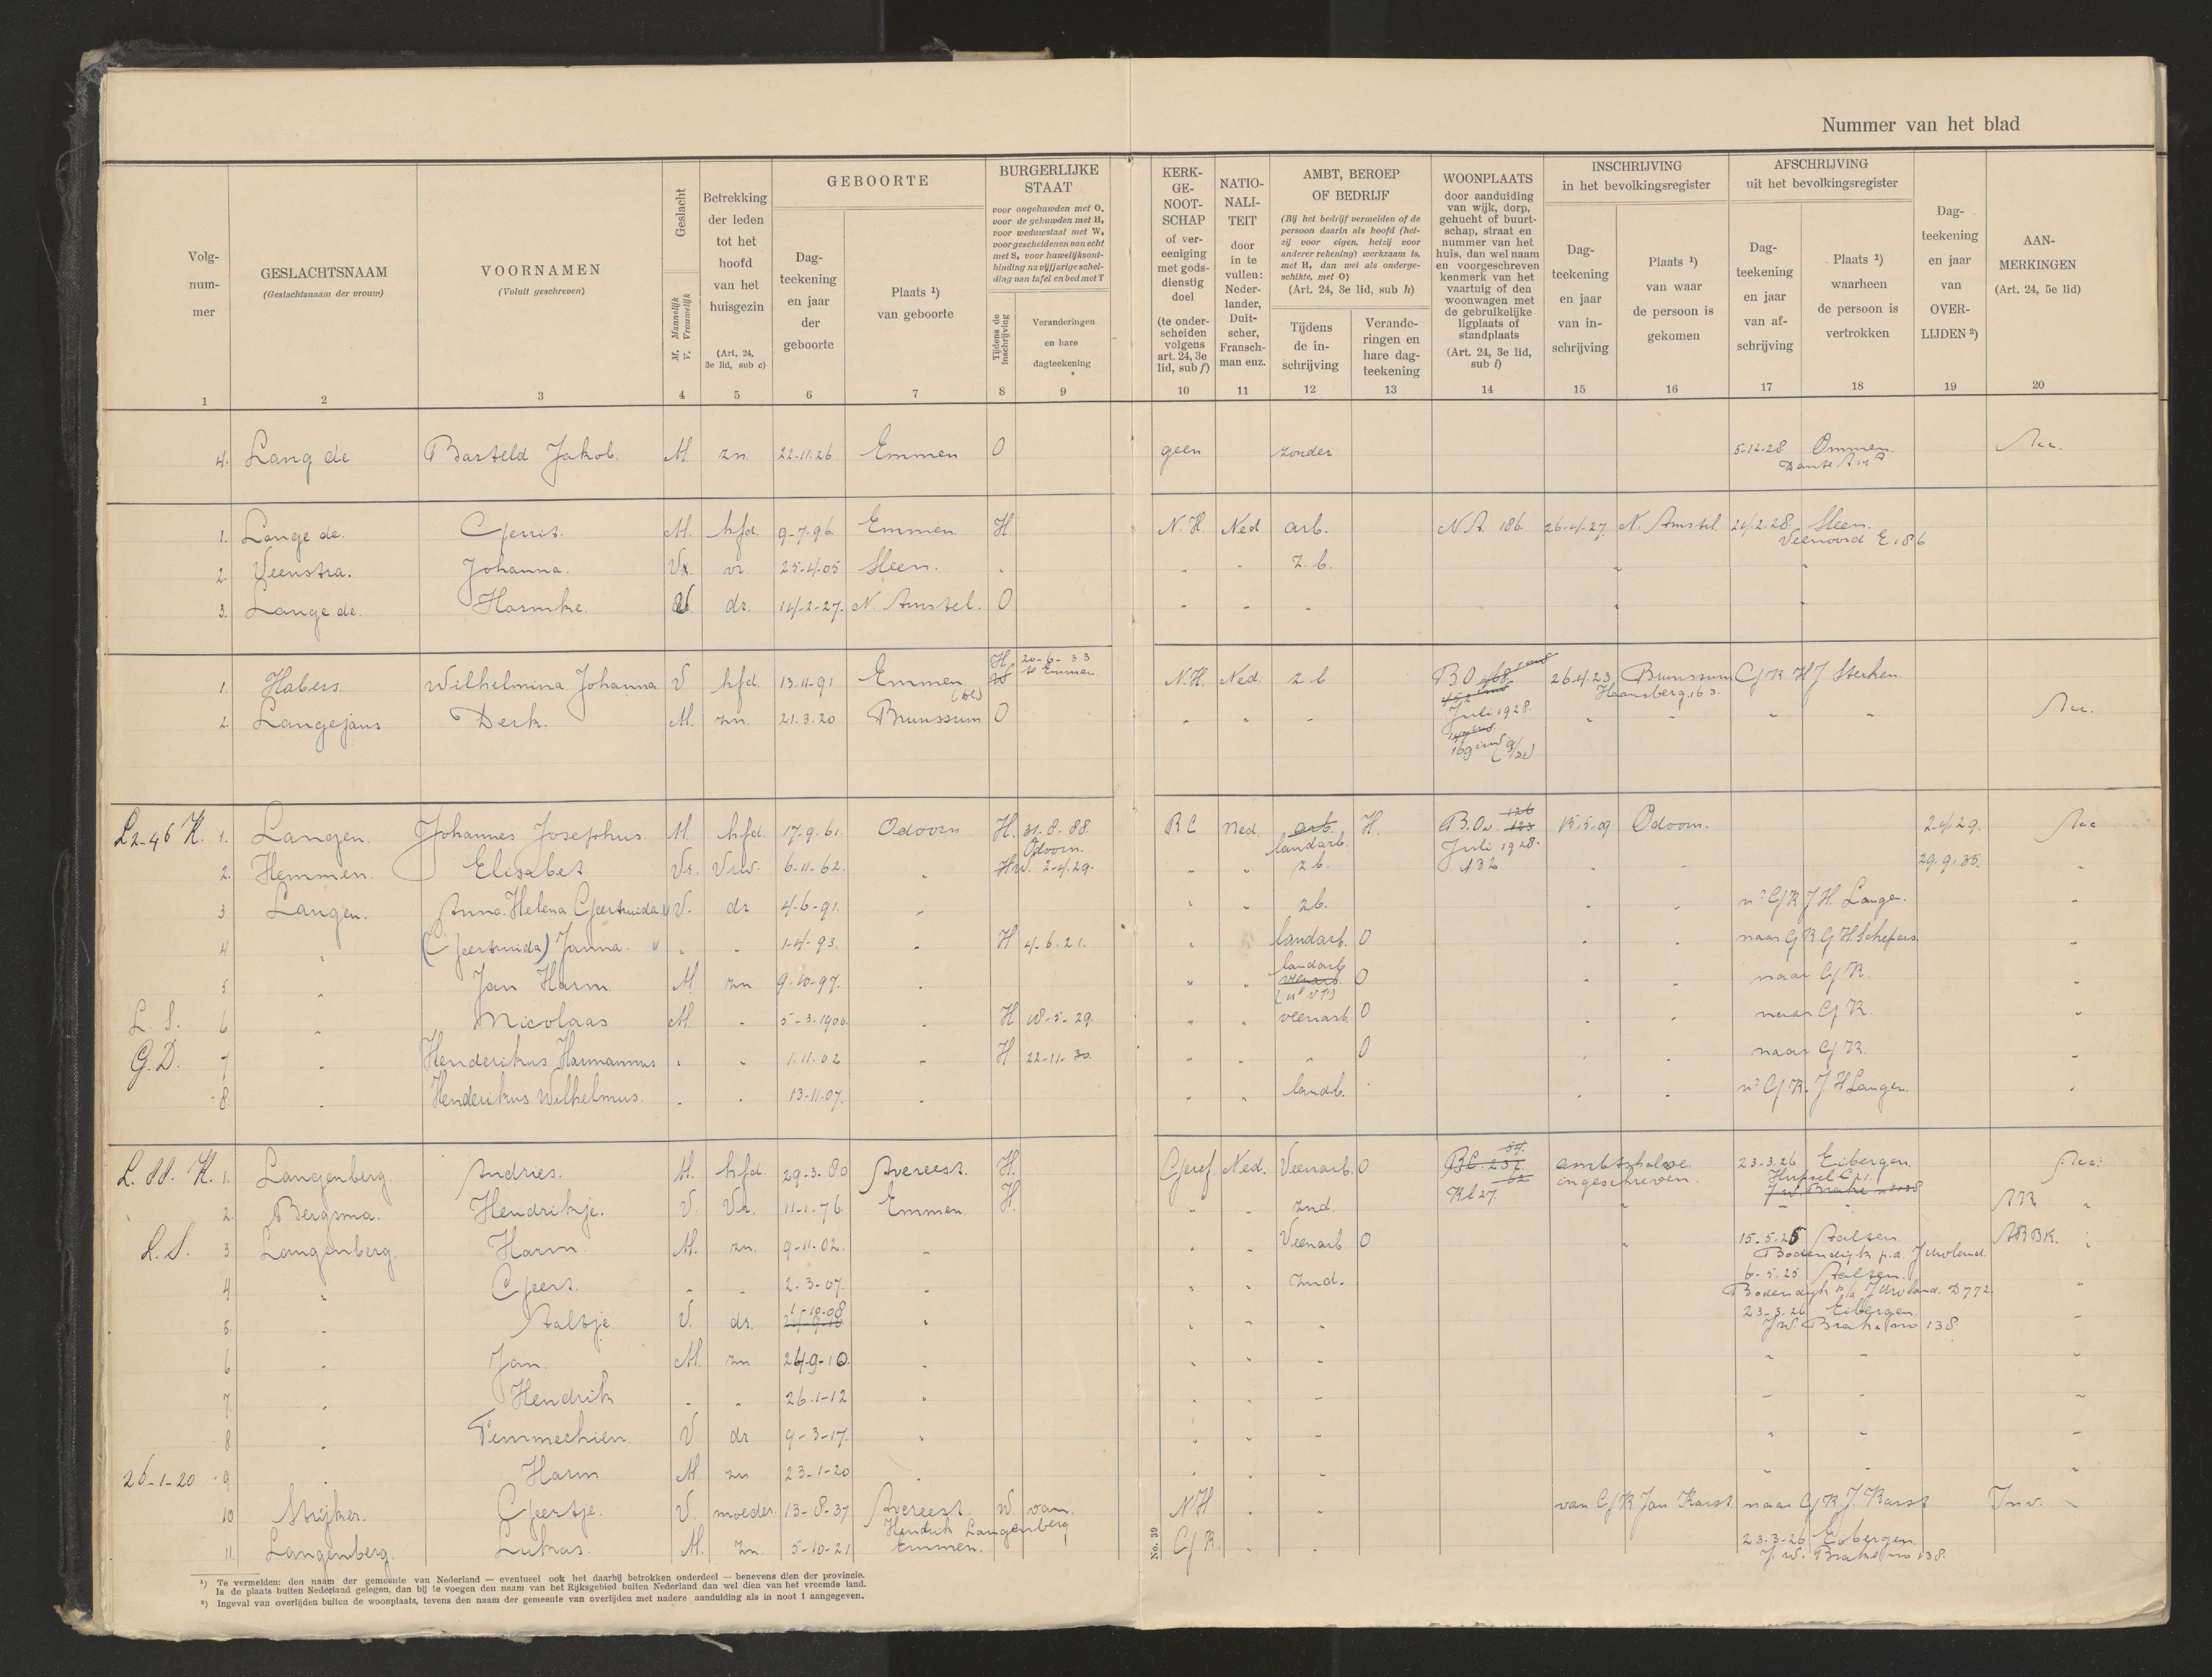 Nummer van het blad
Volg-
num-
mer
1
GESLACHTSNAAM
(Geslachtsnaam der vrouw)
2
VOORNAMEN
(Voluit geschreven)
3
Geslacht
M. Mannelijk
V. Vrouwelijk
4
Betrekking
der leden
tot het
hoofd
van het
huisgezin
(Art. 24,
3e lid, sub c)
5
GEBOORTE
Dag-
teekening
en jaar
der
geboorte
6
Plaats ¹)
van geboorte
7
BURGERLIJKE
STAAT
voor ongehuwden met O,
voor de gehuwden met H,
voor weduwstaat met W,
voor gescheidenen van echt
met S, voor huwelijksont-
binding na vijfjarige schei-
ding van tafel en bed met T
Tijdens de
inschrijving
8
Veranderingen
en hare
dagteekening
9
KERK-
GE-
NOOT-
SCHAP
of ver-
eeniging
met gods-
dienstig
doel
(te onder-
scheiden
volgens
art. 24, 3e
lid, sub f)
10
NATIO-
NALI-
TEIT
door
in te
vullen:
Neder-
lander,
Duit-
scher,
Fransch-
man enz.
11
AMBT, BEROEP
OF BEDRIJF
(Bij het bedrijf vermelden of de
persoon daarin als hoofd (het-
zij voor eigen, hetzij voor
anderer rekening) werkzaam is,
met H, dan wel als onderge-
schikte, met O)
(Art. 24, 3e lid, sub h)
Tijdens
de in-
schrijving
12
Verande-
ringen en
hare dag-
teekening
13
WOONPLAATS
door aanduiding
van wijk, dorp,
gehucht of buurt-
schap, straat en
nummer van het
huis, dan wel naam
en voorgeschreven
kenmerk van het
vaartuig of den
woonwagen met
de gebruikelijke
ligplaats of
standplaats
(Art. 24, 3e lid,
sub i)
14
INSCHRIJVING
in het bevolkingsregister
Dag-
teekening
en jaar
van in-
schrijving
15
Plaats ¹)
van waar
de persoon is
gekomen
16
AFSCHRIJVING
uit het bevolkingsregister
Dag-
teekening
en jaar
van af-
schrijving
17
Plaats ¹)
waarheen
de persoon is
vertrokken
18
Dag-
teekening
en jaar
van
OVER-
LIJDEN ²)
19
AAN-
MERKINGEN
(Art. 24, 5e lid)
20
4. Lang de Barteld Jakob. M. zn. 22-11-26 Emmen O geen zonder 5-12-28 Ommen.
1. Lange de. Gerrit. M. hfd. 9-7-96 Emmen H. N.H. Ned arb. N.A. 186. 26-4-27. N. Amstel. 24-2-28. Sleen.
Veenoord E 186
2. Veenstra. Johanna. V. vr. 25-4-05 Sleen. " " " z.b. " "
3. Lange de. Harmke. V. dr. 14-2-27. N. Amstel. O " " " " "
1. Habers. Wilhelmina Johanna V hfd. 13-11-91 Emmen H. 20-6-33 te Emmen. N.H. Ned. z b BO 468 26-4-23 Brunssum GK HJ Sterken.
Haansberg 163.
2. Langejans Derk. M. zn. 21.3.20 Brunssum O " " " Juli 1928. " " " "
169
L2-46 K. 1. Langen. Johannes Josephus. M hfd. 17-9-61. Odoorn H. 31.8.88 Odoorn. RC Ned. arb. H. B.O. 126 123 15-5-09 Odoorn. 2-4-29.
landarb. Juli 1928.
2. Hemmen. Elisabet. Vr. Vrw. 6-11-62. " HW. 2-4-29. " " z.b. 132 " " 29.9.35.
3 Langen. Anna Helena Geertruida. V. dr 4-6-91. " " " zb. " " nr GK J H. Langen. "
4 " (Geertruida) Janna. " " 1-4-93. " H 4-6.21. " landarb. O " " naar GK G H. Schepers "
5 " Jan Harm M zn 9-10-97. " " " landarb veenarb. O " " naar GK. "
L.S. 6 " Nicolaas M. " 5-3-1900. " H 18-5-29. " " veenarb O " " naar GK. "
G.D. 7 " Henderikus Harmannus " " 1-11-02 " H 22-11-30. " " " O " " naar GK. "
8. " Henderikus Wilhelmus. " " 13-11-07. " " " landb. " " " nr GK. J H Langen. "
L. 88. K. 1. Langenberg Andries. M. hfd. 29-3-80 Avereest. H. Geref. Ned. Veenarb. O BC. 237 54. 62 ambtshalve 23-3-26 Eibergen.
Kl 27. ingeschreven. Hupsel C 21.
J.W. Brake no 138
2. Bergsma. Hendrikje. V. Vr. 11-1-76 Emmen. H. " " znd. " " " AR "
L.S. 3 Langenberg. Harm M. zn. 9-11-02. " " " Veenarb. O " 15-5-25 Aalten. ARBK.
Bodendijk p.a.
4 " Geert. " " 2-3-07. " " " znd. 6-5-25 Aalten. "
Bodendijk D 772.
5. " Aaltje. V. dr. 1-10-08 " " " " 23-3-26 Eibergen. "
J.W. Brake no 138
6 " Jan. M. zn 24-9-10. " " " " " " "
7 " Hendrik " " 26-1-12 " " " " " " "
8 " Femmechien V dr 9-3-17. " " " " " " "
26-1-20 9 " Harm M. zn 23-1-20 " " " " " " "
10 Strijker. Geertje. V. moeder 13-8-37 Avereest. W. van. NH " " van GK Jan Karst naar GK. J. Karst Inv.
Hendrik Langenberg
11. Langenberg. Lukas. M. zn. 5-10-21 Emmen. GK. " " 23-3-26 Eibergen
J.W. Brake no 138.
No. 39
¹) Te vermelden: den naam der gemeente van Nederland — eventueel ook het daarbij betrokken onderdeel — benevens dien der provincie.
Is de plaats buiten Nederland gelegen, dan bij te voegen den naam van het Rijksgebied buiten Nederland dan wel dien van het vreemde land.
²) Ingeval van overlijden buiten de woonplaats, tevens den naam der gemeente van overlijden met nadere aanduiding als in noot 1 aangegeven.